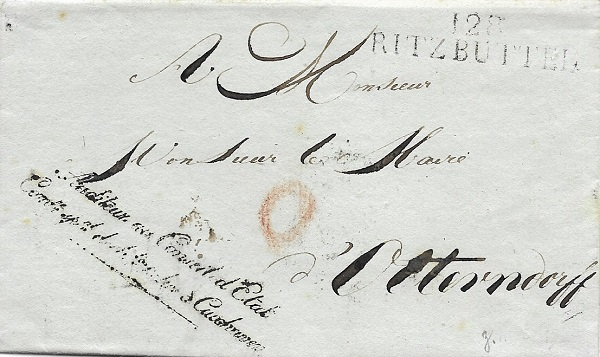 128
RITZBUTTEL
A Monsieur
Monsieur le Maire
d'Otterndorff
Auditeur au Conseil d'Etat
à Cuxhaven